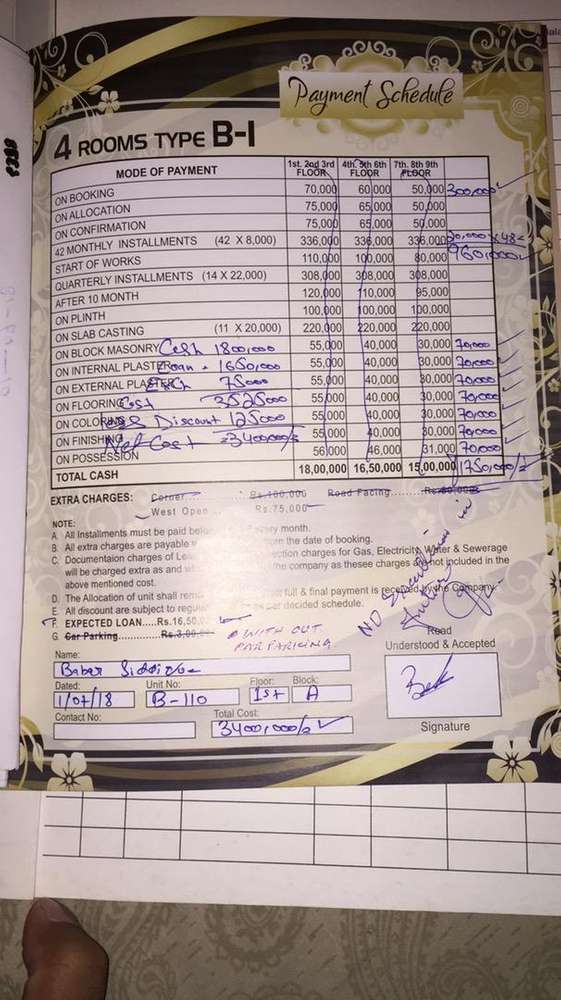 Payment Schedule
4 ROOMS TYPE B-I
MODE OF PAYMENT 1st. 2nd 3rd FLOOR 4th. 5th 6th FLOOR 7th. 8th 9th FLOOR
ON BOOKING 70,000 60,000 50,000 300,000
ON ALLOCATION 75,000 65,000 50,000
ON CONFIRMATION 75,000 65,000 50,000
42 MONTHLY INSTALLMENTS (42 X 8,000) 336,000 336,000 336,000 20,000 x 48 =
START OF WORKS 110,000 100,000 80,000 960,000
QUARTERLY INSTALLMENTS (14 X 22,000) 308,000 308,000 308,000
AFTER 10 MONTH 120,000 110,000 95,000
ON PLINTH 100,000 100,000 100,000
ON SLAB CASTING (11 X 20,000) 220,000 220,000 220,000
ON BLOCK MASONRY Cash 1800,000 55,000 40,000 30,000 70,000
ON INTERNAL PLASTER Loan + 1650,000 55,000 40,000 30,000 70,000
ON EXTERNAL PLASTER 75000 55,000 40,000 30,000 70,000
ON FLOORING Cost 3525000 55,000 40,000 30,000 70,000
ON COLORING Less Discount 125000 55,000 40,000 30,000 70,000
ON FINISHING Net Cost = 3400,000/= 55,000 40,000 30,000 70,000
ON POSSESSION 56,000 46,000 31,000 70,000
TOTAL CASH 18,00,000 16,50,000 15,00,000 1750,000/=
EXTRA CHARGES: Corner Rs.100,000 Road Facing
West Open Rs.75,000
NOTE:
A. All Installments must be paid every month.
B. All extra charges are payable from the date of booking.
C. Documentaion charges of charges for Gas, Electricity, Water & Sewerage
will be charged extra as and the company as thesee charges are not included in the
above mentioned cost.
D. The Allocation of unit shall full & final payment is received by the Company.
E. All discount are subject to as per decided schedule.
F. EXPECTED LOAN....Rs.16,50,
G. Car Parking WITH OUT
CAR PARKING.
NO
Read
Understood & Accepted
Name:
Babar
Dated: Unit No: Floor: Block:
1/07/18 B-110 1st A
Contact No: Total Cost:
3400,000/=
Signature